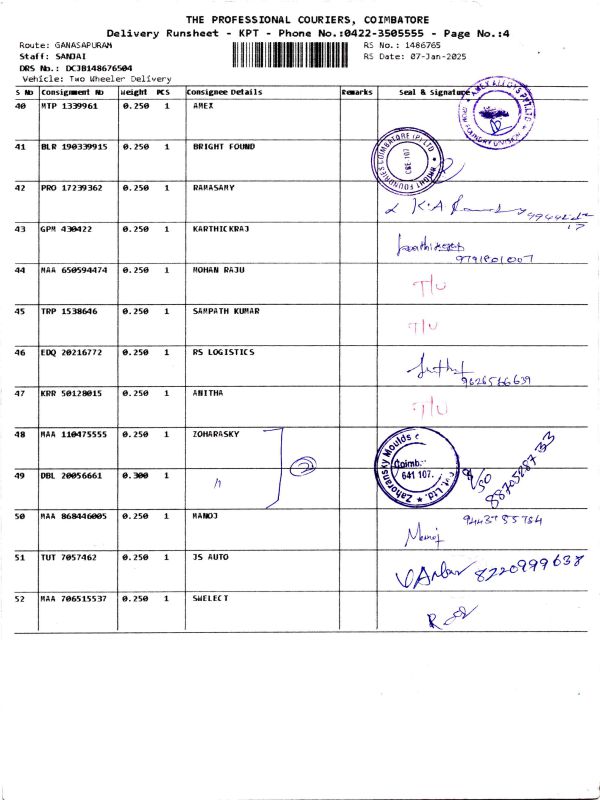 THE PROFESSIONAL COURIERS, COIMBATORE
Delivery Runsheet - KPT - Phone No.:0422-3505555 - Page No.:4
Route: GANASAPURAM RS No.: 1486765
Staff: SANJAI RS Date: 07-Jan-2025
DRS No.: DCJB148676504
Vehicle: Two Wheeler Delivery
S No Consignment No Weight PCS Consignee Details Remarks Seal & Signature
40 MTP 1339961 0.250 1 AMEX
AMEX ALLOYS PVT.LTD. FOUNDRY DIVISION
41 BLR 190339915 0.250 1 BRIGHT FOUND
BRIGHT FOUNDRIES COIMBATORE (P) LTD CBE-107
42 PRO 17239362 0.250 1 RAMASAMY
K.A.
43 GPM 430422 0.250 1 KARTHICKRAJ
9791801007
44 MAA 650594474 0.250 1 MOHAN RAJU
T/U
45 TRP 1538646 0.250 1 SAMPATH KUMAR
T/U
46 EDQ 20216772 0.250 1 RS LOGISTICS
9626566639
47 KRR 50128015 0.250 1 ANITHA
T/U
48 MAA 110475555 0.250 1 ZOHARASKY
2
Zahoransky Moulds Coimb. 641 107. Pvt. Ltd.
49 DBL 20056661 0.300 1 "
50 MAA 868446005 0.250 1 MANOJ
Manoj
51 TUT 7057462 0.250 1 JS AUTO
8220999638
52 MAA 706515537 0.250 1 SWELECT